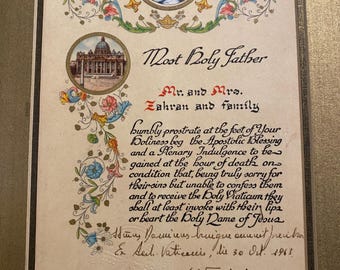 Most Holy Father
Mr. and Mrs.
Zahran and family
humbly prostrate at the feet of Your
Holiness beg the Apostolic Blessing
and a Plenary Indulgence to be
gained at the hour of death on
condition that, being truly sorry for
their sins but unable to confess them
and to receive the Holy Viaticum they
shall at least invoke with their lips
or heart the Holy Name of Jesus
benigne annuit
Ex Aed. Vaticanis, die 30 Oct. 1963